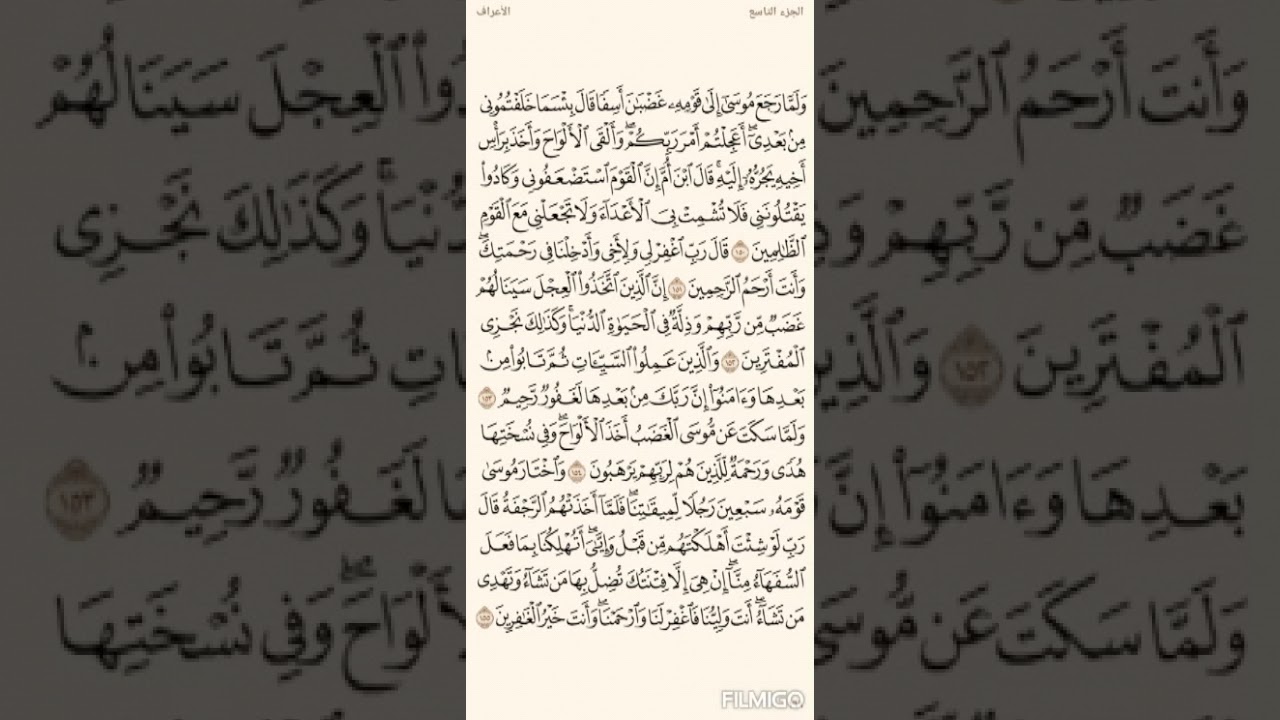 الجزء التاسع
الأعراف
وَلَمَّا رَجَعَ مُوسَىٰٓ إِلَىٰ قَوْمِهِۦ غَضْبَٰنَ أَسِفًا قَالَ بِئْسَمَا خَلَفْتُمُونِى
مِنۢ بَعْدِىٓ ۖ أَعَجِلْتُمْ أَمْرَ رَبِّكُمْ ۖ وَأَلْقَى ٱلْأَلْوَاحَ وَأَخَذَ بِرَأْسِ
أَخِيهِ يَجُرُّهُۥٓ إِلَيْهِ ۚ قَالَ ٱبْنَ أُمَّ إِنَّ ٱلْقَوْمَ ٱسْتَضْعَفُونِى وَكَادُوا۟
يَقْتُلُونَنِى فَلَا تُشْمِتْ بِىَ ٱلْأَعْدَآءَ وَلَا تَجْعَلْنِى مَعَ ٱلْقَوْمِ
ٱلظَّٰلِمِينَ ١٥٠ قَالَ رَبِّ ٱغْفِرْ لِى وَلِأَخِى وَأَدْخِلْنَا فِى رَحْمَتِكَ ۖ
وَأَنتَ أَرْحَمُ ٱلرَّٰحِمِينَ ١٥١ إِنَّ ٱلَّذِينَ ٱتَّخَذُوا۟ ٱلْعِجْلَ سَيَنَالُهُمْ
غَضَبٌ مِّن رَّبِّهِمْ وَذِلَّةٌ فِى ٱلْحَيَوٰةِ ٱلدُّنْيَا ۚ وَكَذَٰلِكَ نَجْزِى
ٱلْمُفْتَرِينَ ١٥٢ وَٱلَّذِينَ عَمِلُوا۟ ٱلسَّيِّـَٔاتِ ثُمَّ تَابُوا۟ مِنۢ
بَعْدِهَا وَءَامَنُوٓا۟ إِنَّ رَبَّكَ مِنۢ بَعْدِهَا لَغَفُورٌ رَّحِيمٌ ١٥٣
وَلَمَّا سَكَتَ عَن مُّوسَى ٱلْغَضَبُ أَخَذَ ٱلْأَلْوَاحَ ۖ وَفِى نُسْخَتِهَا
هُدًى وَرَحْمَةٌ لِّلَّذِينَ هُمْ لِرَبِّهِمْ يَرْهَبُونَ ١٥٤ وَٱخْتَارَ مُوسَىٰ
قَوْمَهُۥ سَبْعِينَ رَجُلًا لِّمِيقَٰتِنَا ۖ فَلَمَّآ أَخَذَتْهُمُ ٱلرَّجْفَةُ قَالَ
رَبِّ لَوْ شِئْتَ أَهْلَكْتَهُم مِّن قَبْلُ وَإِيَّٰىَ ۖ أَتُهْلِكُنَا بِمَا فَعَلَ
ٱلسُّفَهَآءُ مِنَّآ ۖ إِنْ هِىَ إِلَّا فِتْنَتُكَ تُضِلُّ بِهَا مَن تَشَآءُ وَتَهْدِى
مَن تَشَآءُ ۖ أَنتَ وَلِيُّنَا فَٱغْفِرْ لَنَا وَٱرْحَمْنَا ۖ وَأَنتَ خَيْرُ ٱلْغَٰفِرِينَ ١٥٥
FILMIGO